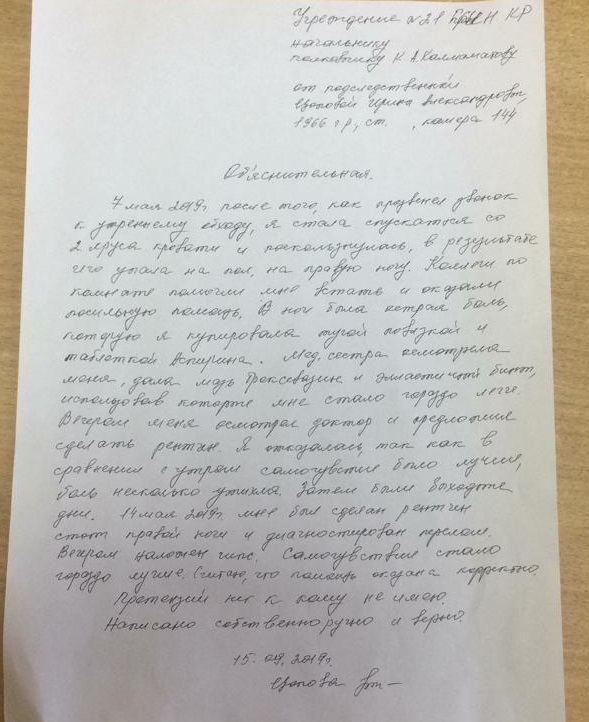 Учреждение №21 КР
начальнику
полковнику К.А.
от подследственной
Ирины Александровны,
1966 г.р., ст. , камера 144
Объяснительная.
7 мая 2019г после того, как прозвенел звонок
к утреннему обходу, я стала спускаться со
2 яруса кровати и поскользнулась, в результате
чего упала на пол, на правую ногу. Коллеги по
комнате помогли мне встать и оказали
посильную помощь. В ноге была острая боль,
которую я купировала тугой повязкой и
таблеткой Аспирина. Мед. сестра осмотрела
меня, дала мазь Троксевазин и эластичный бинт,
использовав которые мне стало гораздо легче.
Вечером меня осмотрел доктор и предложил
сделать рентген. Я отказалась, так как в
сравнении с утром самочувствие было лучше,
боль несколько утихла. Затем были выходные
дни. 14 мая 2019г. мне был сделан рентген
стоп правой ноги и диагностирован перелом.
Вечером наложен гипс. Самочувствие стало
гораздо лучше. Считаю, что помощь оказана корректно.
Претензий ни к кому не имею.
Написано собственноручно и верно.
15.09.2019г.